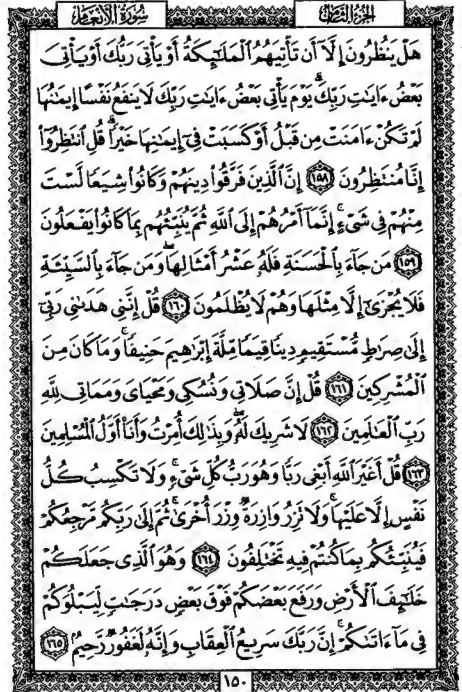 سُورَةُ الأَنْعَامِ
الجُزءُ الثَّامِنُ
هَلۡ يَنظُرُونَ إِلَّآ أَن تَأۡتِيَهُمُ ٱلۡمَلَٰٓئِكَةُ أَوۡ يَأۡتِيَ رَبُّكَ أَوۡ يَأۡتِيَ
بَعۡضُ ءَايَٰتِ رَبِّكَۗ يَوۡمَ يَأۡتِي بَعۡضُ ءَايَٰتِ رَبِّكَ لَا يَنفَعُ نَفۡسًا إِيمَٰنُهَا
لَمۡ تَكُنۡ ءَامَنَتۡ مِن قَبۡلُ أَوۡ كَسَبَتۡ فِيٓ إِيمَٰنِهَا خَيۡرٗاۗ قُلِ ٱنتَظِرُوٓاْ
إِنَّا مُنتَظِرُونَ ١٥٨ إِنَّ ٱلَّذِينَ فَرَّقُواْ دِينَهُمۡ وَكَانُواْ شِيَعٗا لَّسۡتَ
مِنۡهُمۡ فِي شَيۡءٍۚ إِنَّمَآ أَمۡرُهُمۡ إِلَى ٱللَّهِ ثُمَّ يُنَبِّئُهُم بِمَا كَانُواْ يَفۡعَلُونَ
١٥٩ مَن جَآءَ بِٱلۡحَسَنَةِ فَلَهُۥ عَشۡرُ أَمۡثَالِهَاۖ وَمَن جَآءَ بِٱلسَّيِّئَةِ
فَلَا يُجۡزَىٰٓ إِلَّا مِثۡلَهَا وَهُمۡ لَا يُظۡلَمُونَ ١٦٠ قُلۡ إِنَّنِي هَدَىٰنِي رَبِّيٓ
إِلَىٰ صِرَٰطٖ مُّسۡتَقِيمٖ دِينٗا قِيَمٗا مِّلَّةَ إِبۡرَٰهِيمَ حَنِيفٗاۚ وَمَا كَانَ مِنَ
ٱلۡمُشۡرِكِينَ ١٦١ قُلۡ إِنَّ صَلَاتِي وَنُسُكِي وَمَحۡيَايَ وَمَمَاتِي لِلَّهِ
رَبِّ ٱلۡعَٰلَمِينَ ١٦٢ لَا شَرِيكَ لَهُۥۖ وَبِذَٰلِكَ أُمِرۡتُ وَأَنَا۠ أَوَّلُ ٱلۡمُسۡلِمِينَ
١٦٣ قُلۡ أَغَيۡرَ ٱللَّهِ أَبۡغِي رَبّٗا وَهُوَ رَبُّ كُلِّ شَيۡءٖۚ وَلَا تَكۡسِبُ كُلُّ
نَفۡسٍ إِلَّا عَلَيۡهَاۚ وَلَا تَزِرُ وَازِرَةٞ وِزۡرَ أُخۡرَىٰۚ ثُمَّ إِلَىٰ رَبِّكُم مَّرۡجِعُكُمۡ
فَيُنَبِّئُكُم بِمَا كُنتُمۡ فِيهِ تَخۡتَلِفُونَ ١٦٤ وَهُوَ ٱلَّذِي جَعَلَكُمۡ
خَلَٰٓئِفَ ٱلۡأَرۡضِ وَرَفَعَ بَعۡضَكُمۡ فَوۡقَ بَعۡضٖ دَرَجَٰتٖ لِّيَبۡلُوَكُمۡ
فِي مَآ ءَاتَىٰكُمۡۗ إِنَّ رَبَّكَ سَرِيعُ ٱلۡعِقَابِ وَإِنَّهُۥ لَغَفُورٞ رَّحِيمُۢ ١٦٥
١٥٠